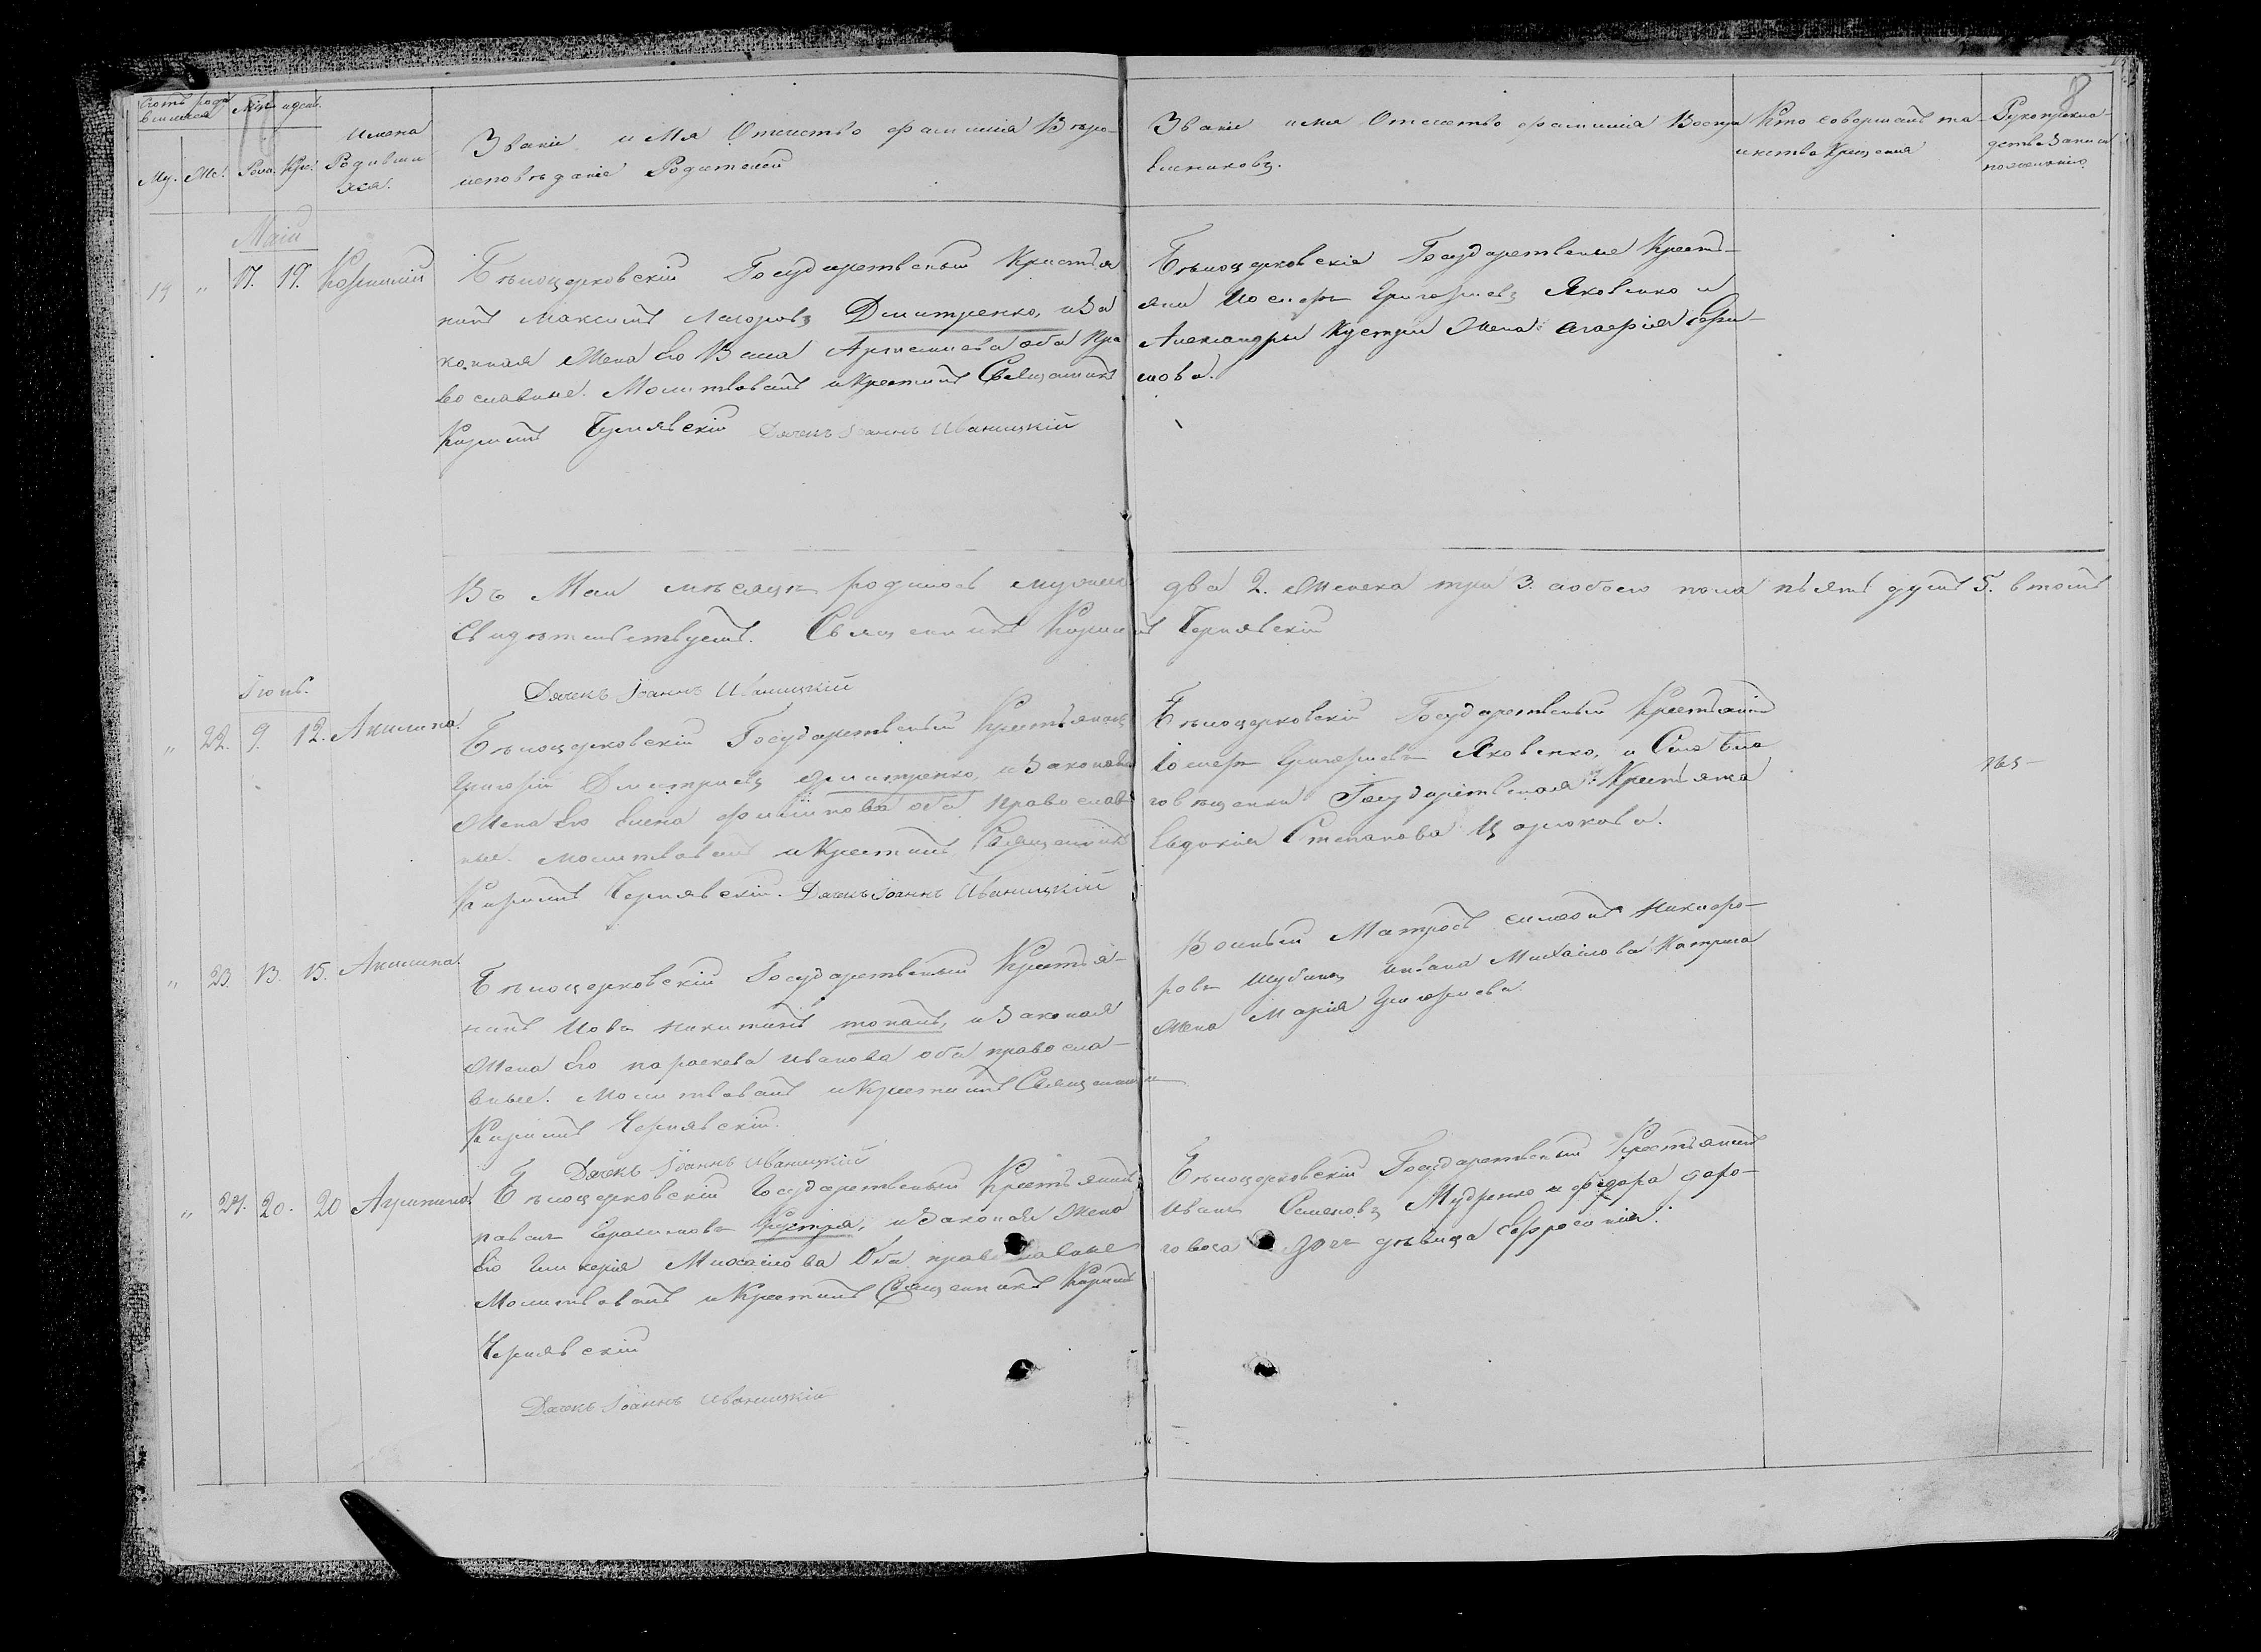 8
Счотъ родившихся
Мѣс. и день
Имена Родившихся.
Званіе имя Отчество фамилія Вѣро-
исповѣданіе Родителей
Званіе имя Отчество фамилія Воспри
емниковъ.
Кто совершалъ та-
инство Крещенія
Рукоприкла-
дство записи
по желанію
Му. Же. Рож. Кре.
Маій
19 " 17. 19.
Бѣлоцерковскій Государственый Крестья
нинъ Максимъ Дмитренко, и За
конная Жена Его Артемиева оба Пра
вославные. Молитвовалъ и Крестилъ Священикъ
Кирилъ Чернявскій Дячекъ Іоаннъ Иваницкій
Бѣлоцерковскіе Государственые Крестъ-
яни Иосифъ Григорьевъ Яковенко и
Александры Жена Агафія
мова.
Въ Маи мѣсяцѣ родилось мужеска два 2. Женска три 3. а обоего пола пьять душъ 5. в томъ
Свидѣтельствуемъ. Священникъ Кирилъ Чернявскій
Дячекъ Іоаннъ Иваницкій
Іюнь.
" 22. 9. 12. Акилина.
Бѣлоцерковскій Государственый Крестьянинъ
Григорій Дмитриевъ Дмитренко, и Законая
Жена Его Елена Филипова оба православ
ные. Молитвовалъ и Крестилъ Священикъ
Кирилъ Чернявскій. Дячекъ Іоаннъ Иваницкій
Бѣлоцерковскій Государственый Крестьянинъ
Іосифъ Григорьевъ Яковенко, и Села Бла
говѣщенки Государственая Крестьянка
Евдокия Степанова
" 23. 13. 15. Акилина.
Бѣлоцерковскій Государственый Крестья-
нинъ Иовъ Никитинъ и Законая
Жена Его Параскева Иванова оба правосла-
вные. Молитвовалъ и Крестилъ Священикъ
Кирилъ Чернявскій.
Дячекъ Іоаннъ Иваницкій
Военый Матросъ Симеонъ Никифо-
ровъ Ивана Михайлова
Жена Марія Григорьева.
" 24. 20. 20 Агрипина.
Бѣлоцерковскій Государственый Крестьянинъ
Павелъ и Законая Жена
Его Гликерія Михайлова Оба православные
Молитвовалъ и Крестилъ Священникъ Кирилъ
Чернявскій
Дячекъ Іоаннъ Иваницкій
Бѣлоцерковскій Государственый Крестьянинъ
Иванъ Семеновъ Мудренко и Федора
дочь дѣвица Ефросинія.